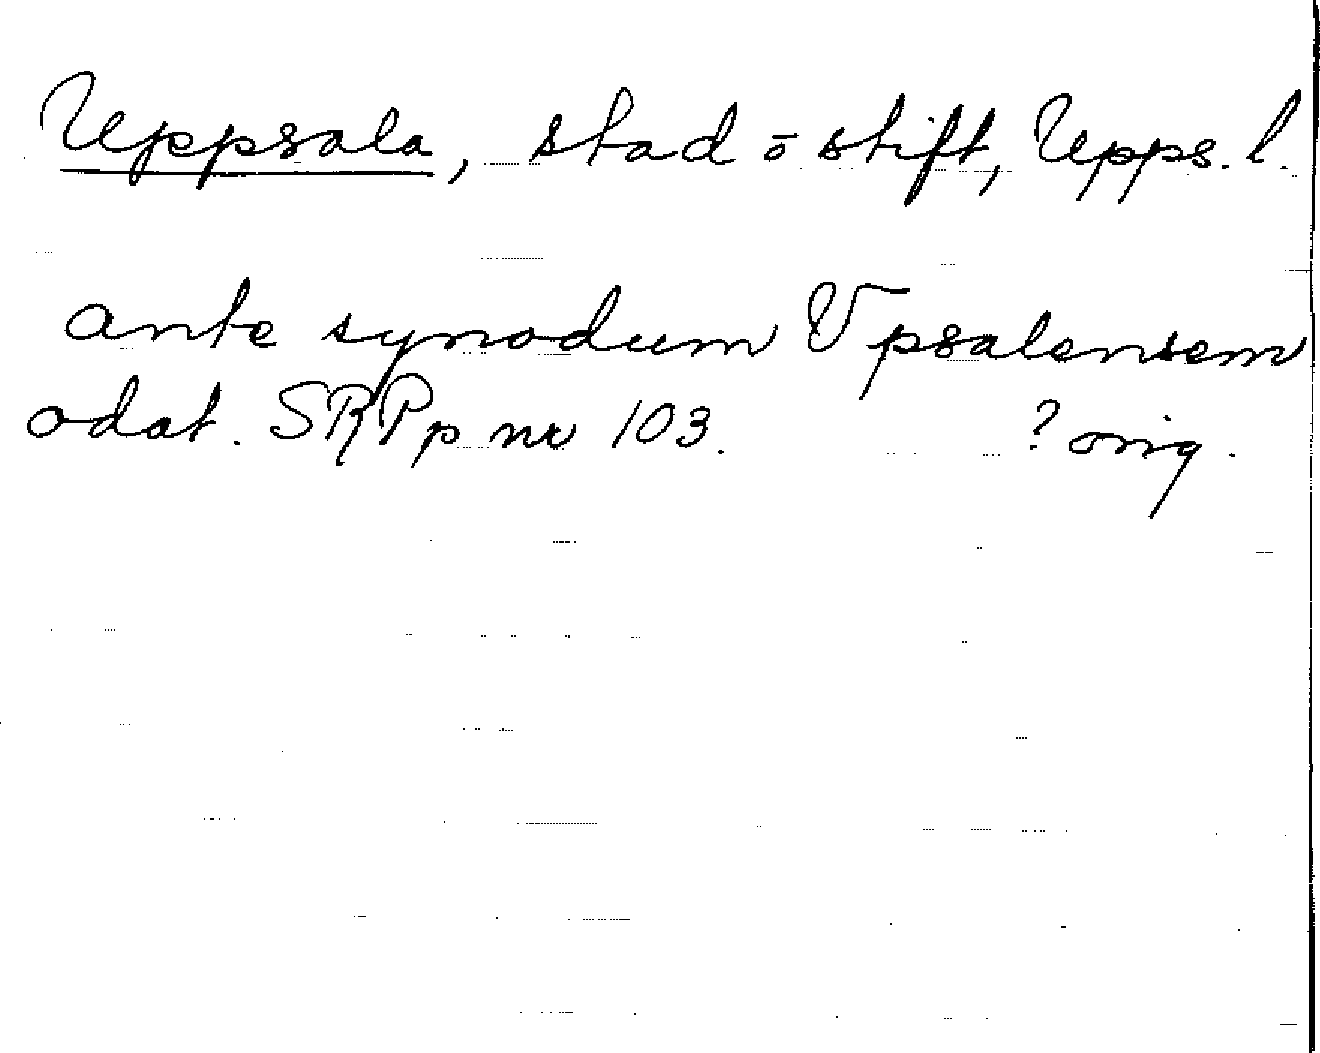 Uppsala, stad o stift, Upps. l.
ante synodum Vpsalensem
odat. SRPp nr 103. ? orig.